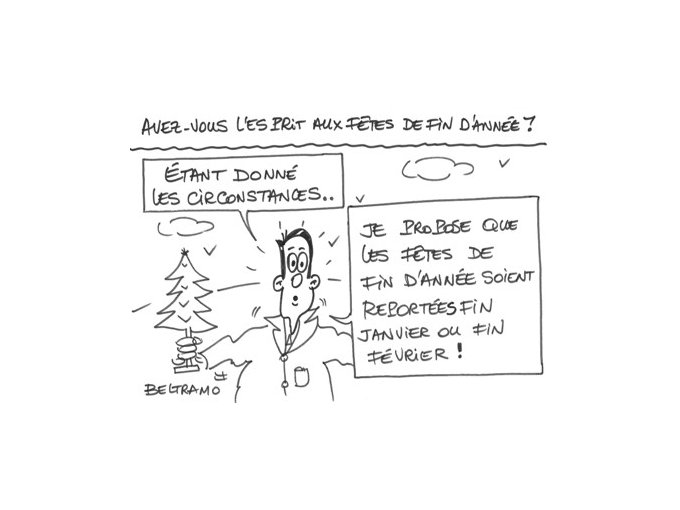 AVEZ-VOUS L'ESPRIT AUX FÊTES DE FIN D'ANNÉE ?
ÉTANT DONNÉ
LES CIRCONSTANCES..
JE PROPOSE QUE
LES FÊTES DE
FIN D'ANNÉE SOIENT
REPORTÉES FIN
JANVIER OU FIN
FÉVRIER !
BELTRAMO